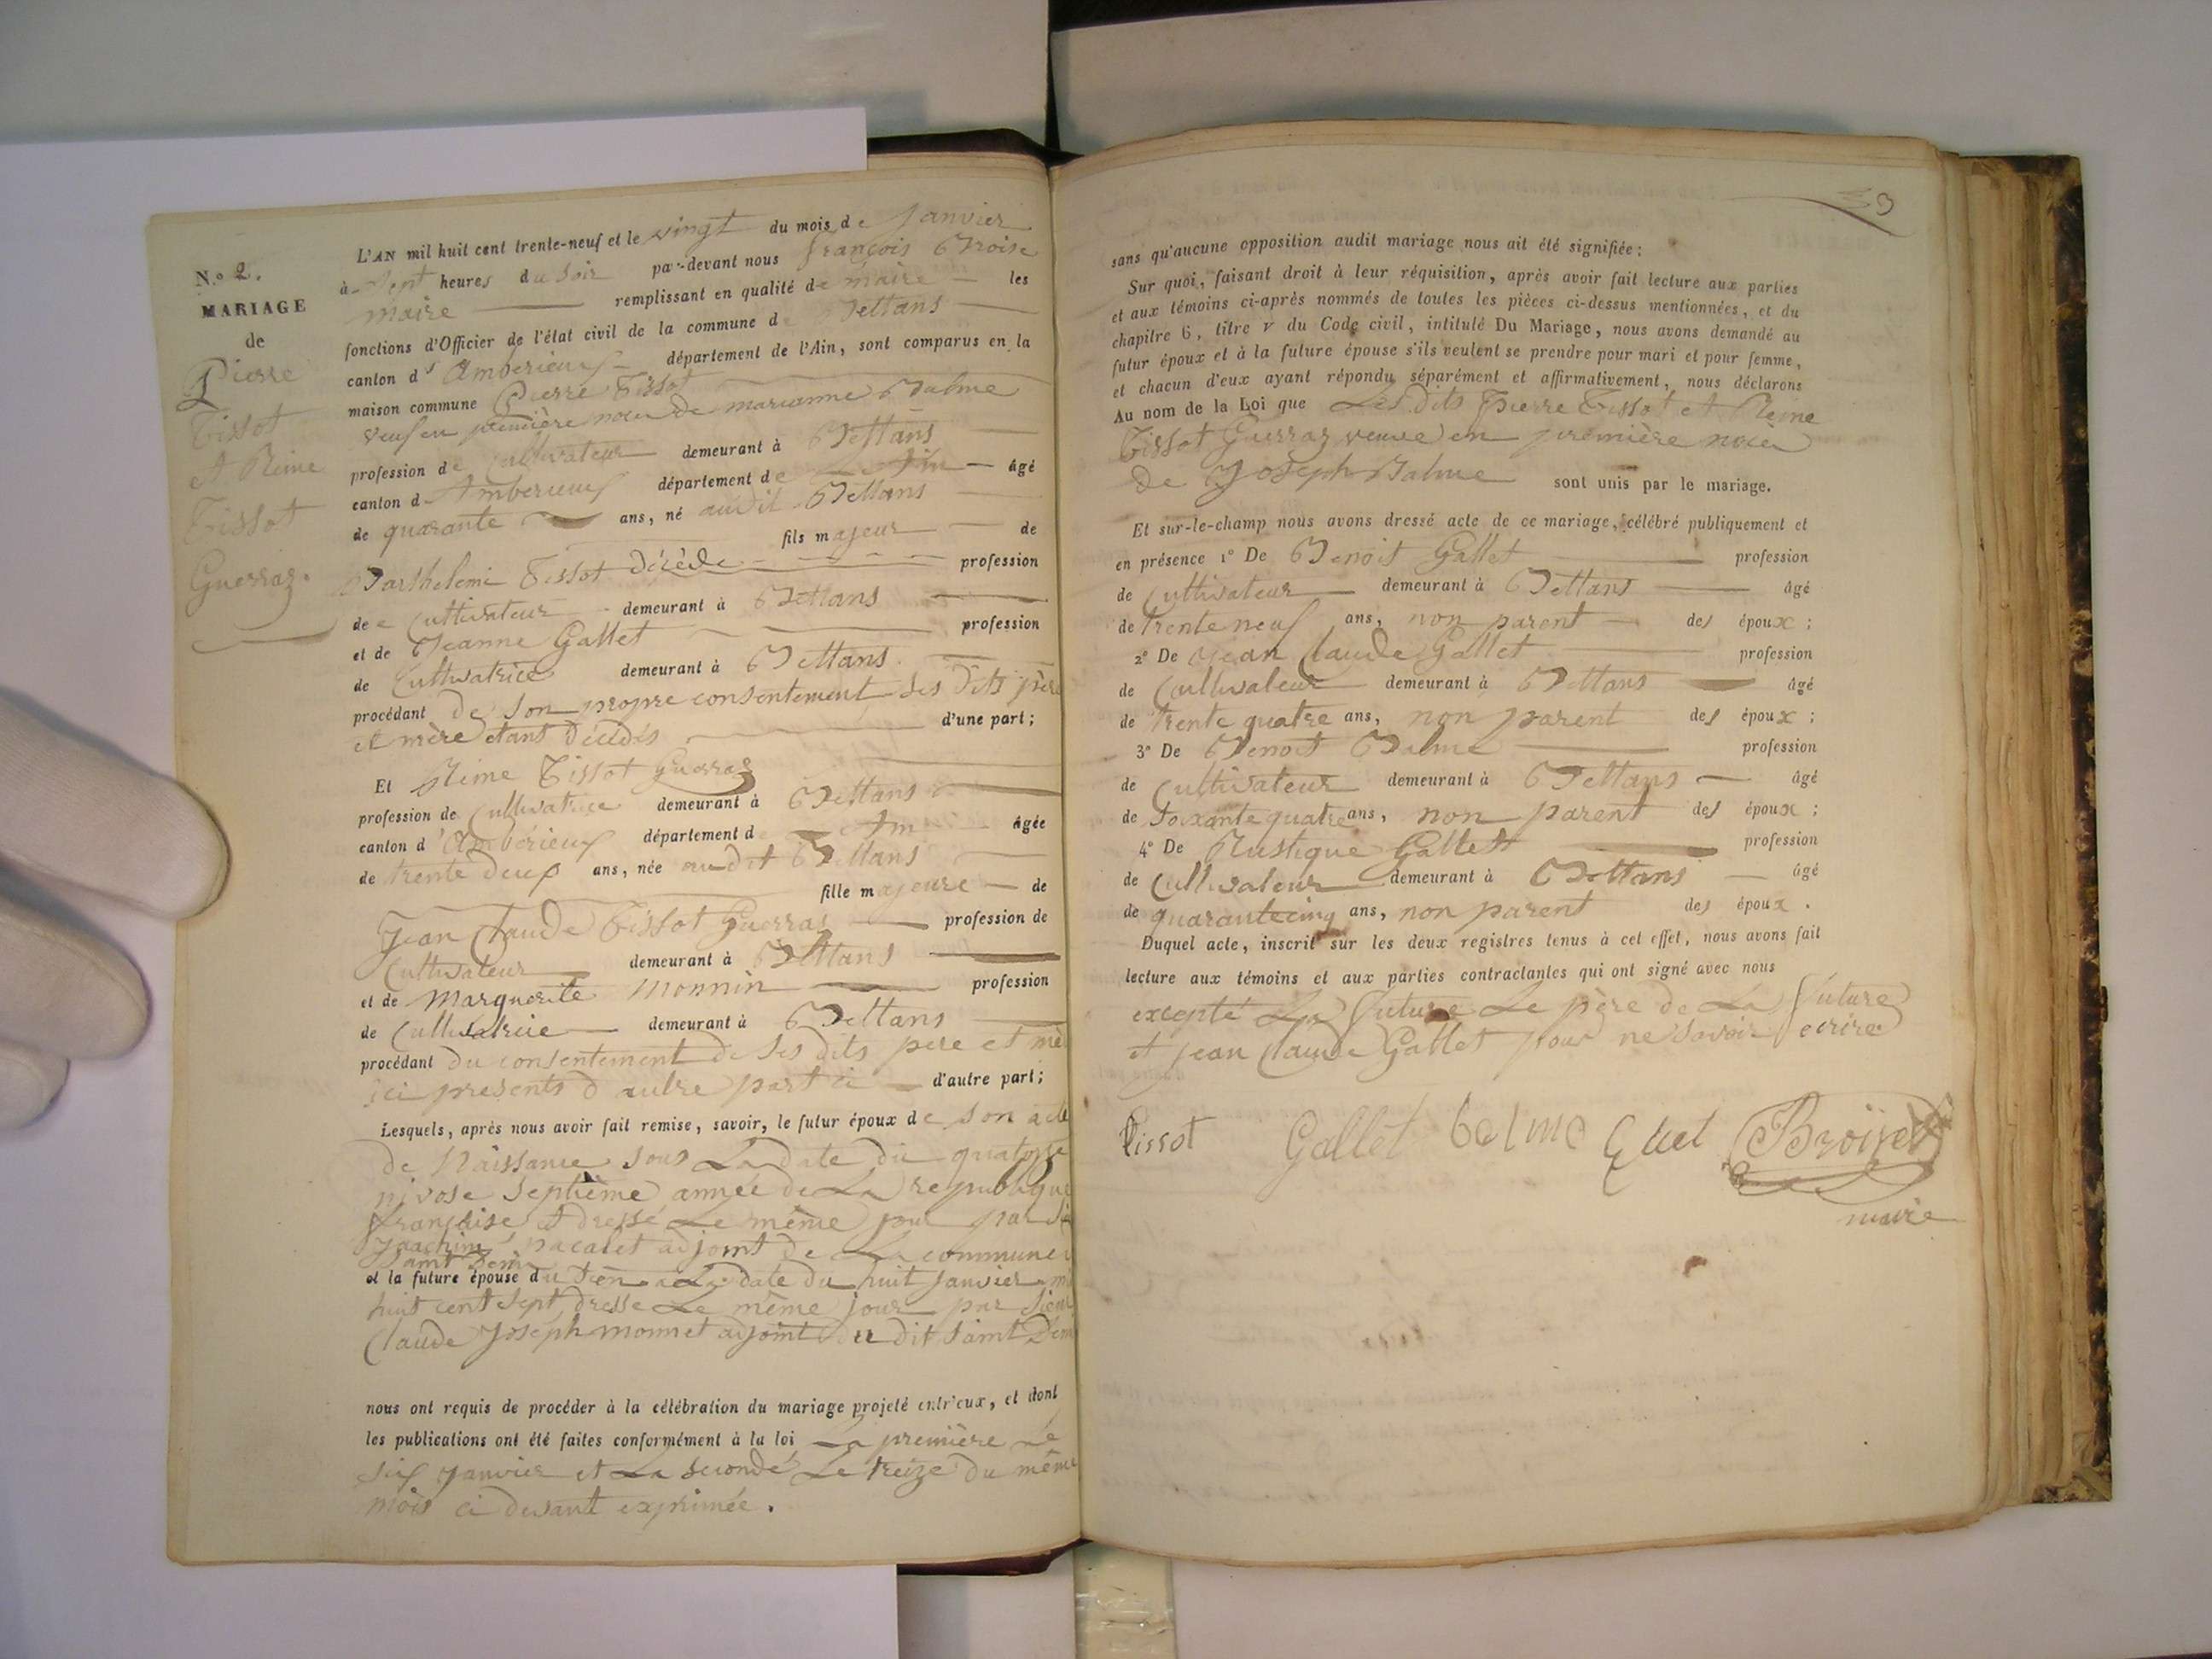 N.o 2.
MARIAGE
de
Pierre
Tissot
et Reine
Tissot
Guerraz.
L'AN mil huit cent trente-neuf et le vingt du mois de Janvier
à sept heures du soir par-devant nous françois Broise
maire remplissant en qualité de maire les
fonctions d'Officier de l'état civil de la commune de Bettans
canton d' Amberieux département de l'Ain, sont comparus en la
maison commune Pierre Tissot
veuf en première noce de marianne Balme
profession de Cultivateur demeurant à Bettans
canton d' Amberieux département de Ain âgé
de quarante ans, né audit Bettans
fils majeur de
Barthelemi Tissot décédé profession
de Cultivateur demeurant à Bettans
et de Jeanne Gallet profession
de Cultivatrice demeurant à Bettans
procédant de son propre consentement ses dits père
et mère etant décédés d'une part;
Et Reine Tissot Guerraz
profession de Cultivatrice demeurant à Bettans
canton d'Ambérieux département d Ain âgée
de trente deux ans, née audit Bettans
fille majeure de
Jean Claude Tissot Guerraz profession de
Cultivateur demeurant à Bettans
et de Marguerite Monnin profession
de Cultivatrice demeurant à Bettans
procédant du consentement de ses dits pere et mè
ici presents d'autre part;
Lesquels, après nous avoir fait remise, savoir, le futur époux de son acte
de Naissance sous La date du quatorze
nivose septième année de La republique
française et dressé Le même jour par
Joachim pacalet adjoint de La commune
Saint Denis
et la future épouse du sien a La date du huit Janvier mil
huit cent sept dressé Le même jour par sieur
Claude Joseph monnet adjoint du dit Saint Den
nous ont requis de procéder à la célébration du mariage projeté entr'eux, et dont
les publications ont été faites conformément à la loi La première Le
six Janvier et La seconde Le treize du même
mois ci devant exprimée.
39
sans qu'aucune opposition audit mariage nous ait été signifiée;
Sur quoi, faisant droit à leur réquisition, après avoir fait lecture aux parties
et aux témoins ci-après nommés de toutes les pièces ci-dessus mentionnées, et du
chapitre 6, titre V du Code civil, intitulé Du Mariage, nous avons demandé au
futur époux et à la future épouse s'ils veulent se prendre pour mari et pour femme,
et chacun d'eux ayant répondu séparément et affirmativement, nous déclarons
Au nom de la Loi que Les dits Pierre Tissot et Reine
Tissot Guerraz veuve en première noce
de Joseph Balme sont unis par le mariage.
Et sur-le-champ nous avons dressé acte de ce mariage, célébré publiquement et
en présence 1° De Benoit Gallet profession
de Cultivateur demeurant à Bettans âgé
de trente neuf ans, non parent des époux;
2° De Jean Claude Gallet profession
de Cultivateur demeurant à Bettans âgé
de trente quatre ans, non parent des époux;
3° De Benoit Balme profession
de Cultivateur demeurant à Bettans âgé
de soixante quatre ans, non parent des époux;
4° De Rustique Gallet profession
de Cultivateur demeurant à Bettans âgé
de quarante cinq ans, non parent des époux.
Duquel acte, inscrit sur les deux registres tenus à cet effet, nous avons fait
lecture aux témoins et aux parties contractantes qui ont signé avec nous
excepté La future Le père de La future
et jean Claude Gallet pour ne savoir ecrire
Tissot Gallet balme Broise
maire